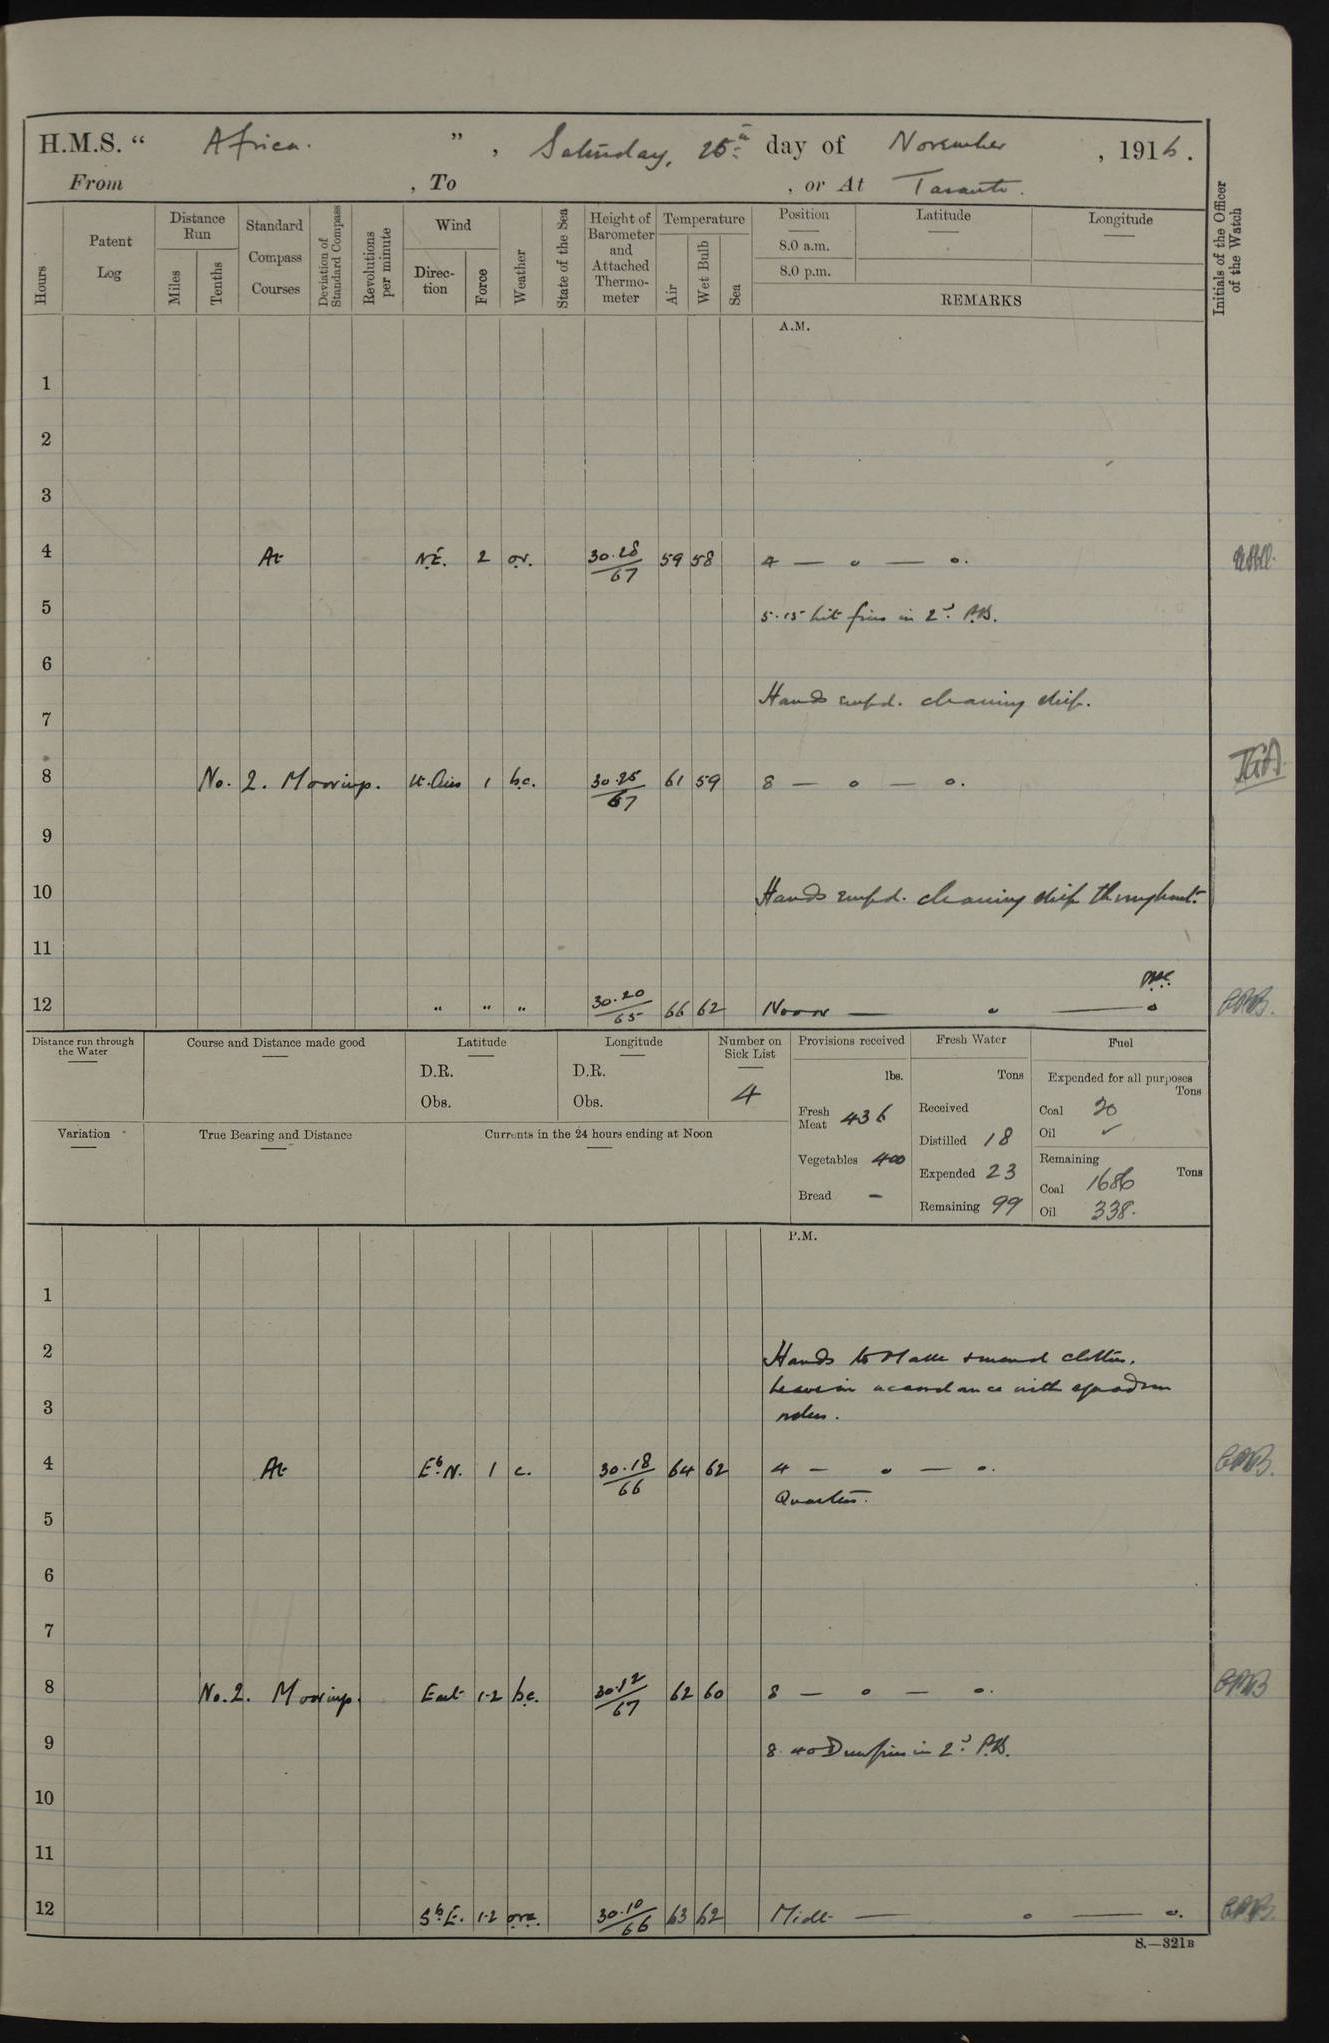 H.M.S. " Africa. ", Saturday, 25th day of November, 1916.
From , To , or At Taranto.
Hours
Patent Log
Distance Run
Miles
Tenths
Standard Compass Courses
Deviation of Standard Compass
Revolutions per minute
Wind
Direction
Force
Weather
State of the Sea
Height of Barometer and Attached Thermometer
Temperature
Air
Wet Bulb
Sea
Position
Latitude
Longitude
8.0 a.m.
8.0 p.m.
REMARKS
Initials of the Officer of the Watch
A.M.
1
2
3
4 At N.E. 2 o.r. 30.28/67 59 58 4 — o — o.
5 5.15 lit fires in 2d P.B.
6
Hands empd. cleaning ship.
7
8 No. 2. Moorings. Lt. Airs 1 b.c. 30.25/67 61 59 8 — o — o.
9
10 Hands empd. cleaning ship throughout.
11
12 " " " 30.20/65 66 62 Noon — o — o
Distance run through the Water
Course and Distance made good
Latitude
D.R.
Obs.
Longitude
D.R.
Obs.
Number on Sick List
4
Provisions received
lbs.
Fresh Meat 436
Vegetables 400
Bread -
Fresh Water
Tons
Received
Distilled 18
Expended 23
Remaining 99
Fuel
Expended for all purposes
Tons
Coal 20
Oil ✓
Remaining
Tons
Coal 1686
Oil 338.
Variation
True Bearing and Distance
Currents in the 24 hours ending at Noon
P.M.
1
2 Hands to make & mend clothes.
Leave in accordance with squadron
3 orders.
4 At E.b.N. 1 c. 30.18/66 64 62 4 — o — o.
Quarters.
5
6
7
8 No. 2. Moorings. East 1-2 b.c. 30.12/67 62 60 8 — o — o.
9 8.40 Drew fires in 2d P.B.
10
11
12 S.b.E. 1-2 30.10/66 63 62 Midt — o — o.
S.—321B